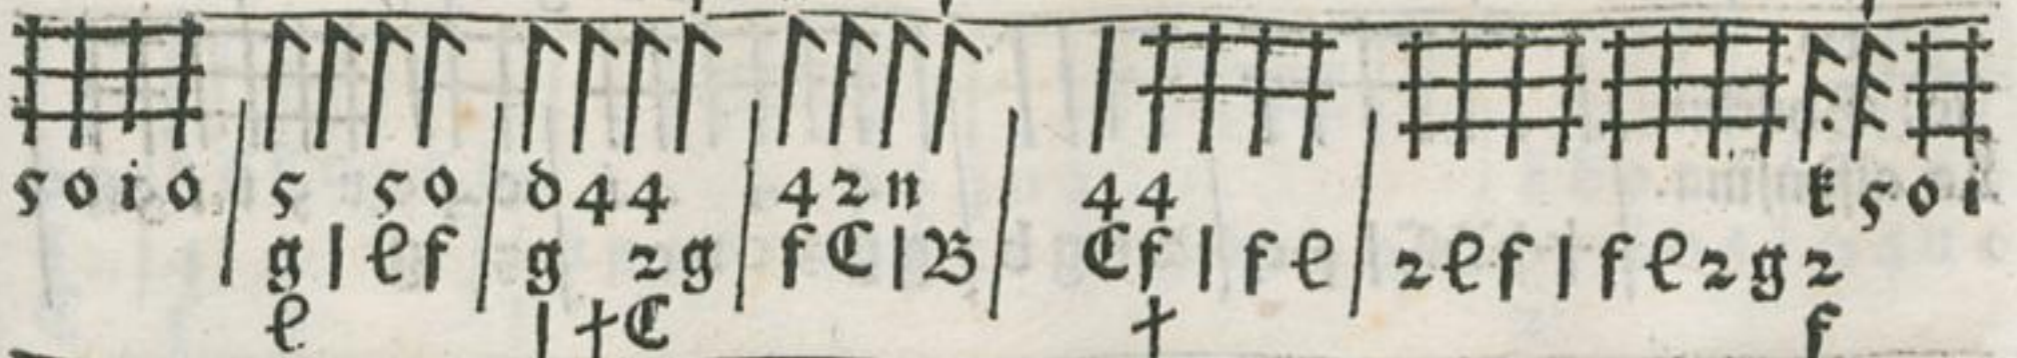 5 0 i 0 | 5 5 0 | d 4 4 | 4 2 n | 4 4 | k 5 0 i
g l e f | g 2 g | f C l B | C f l f e | 2 e f l f e 2 g 2
e l † C † f